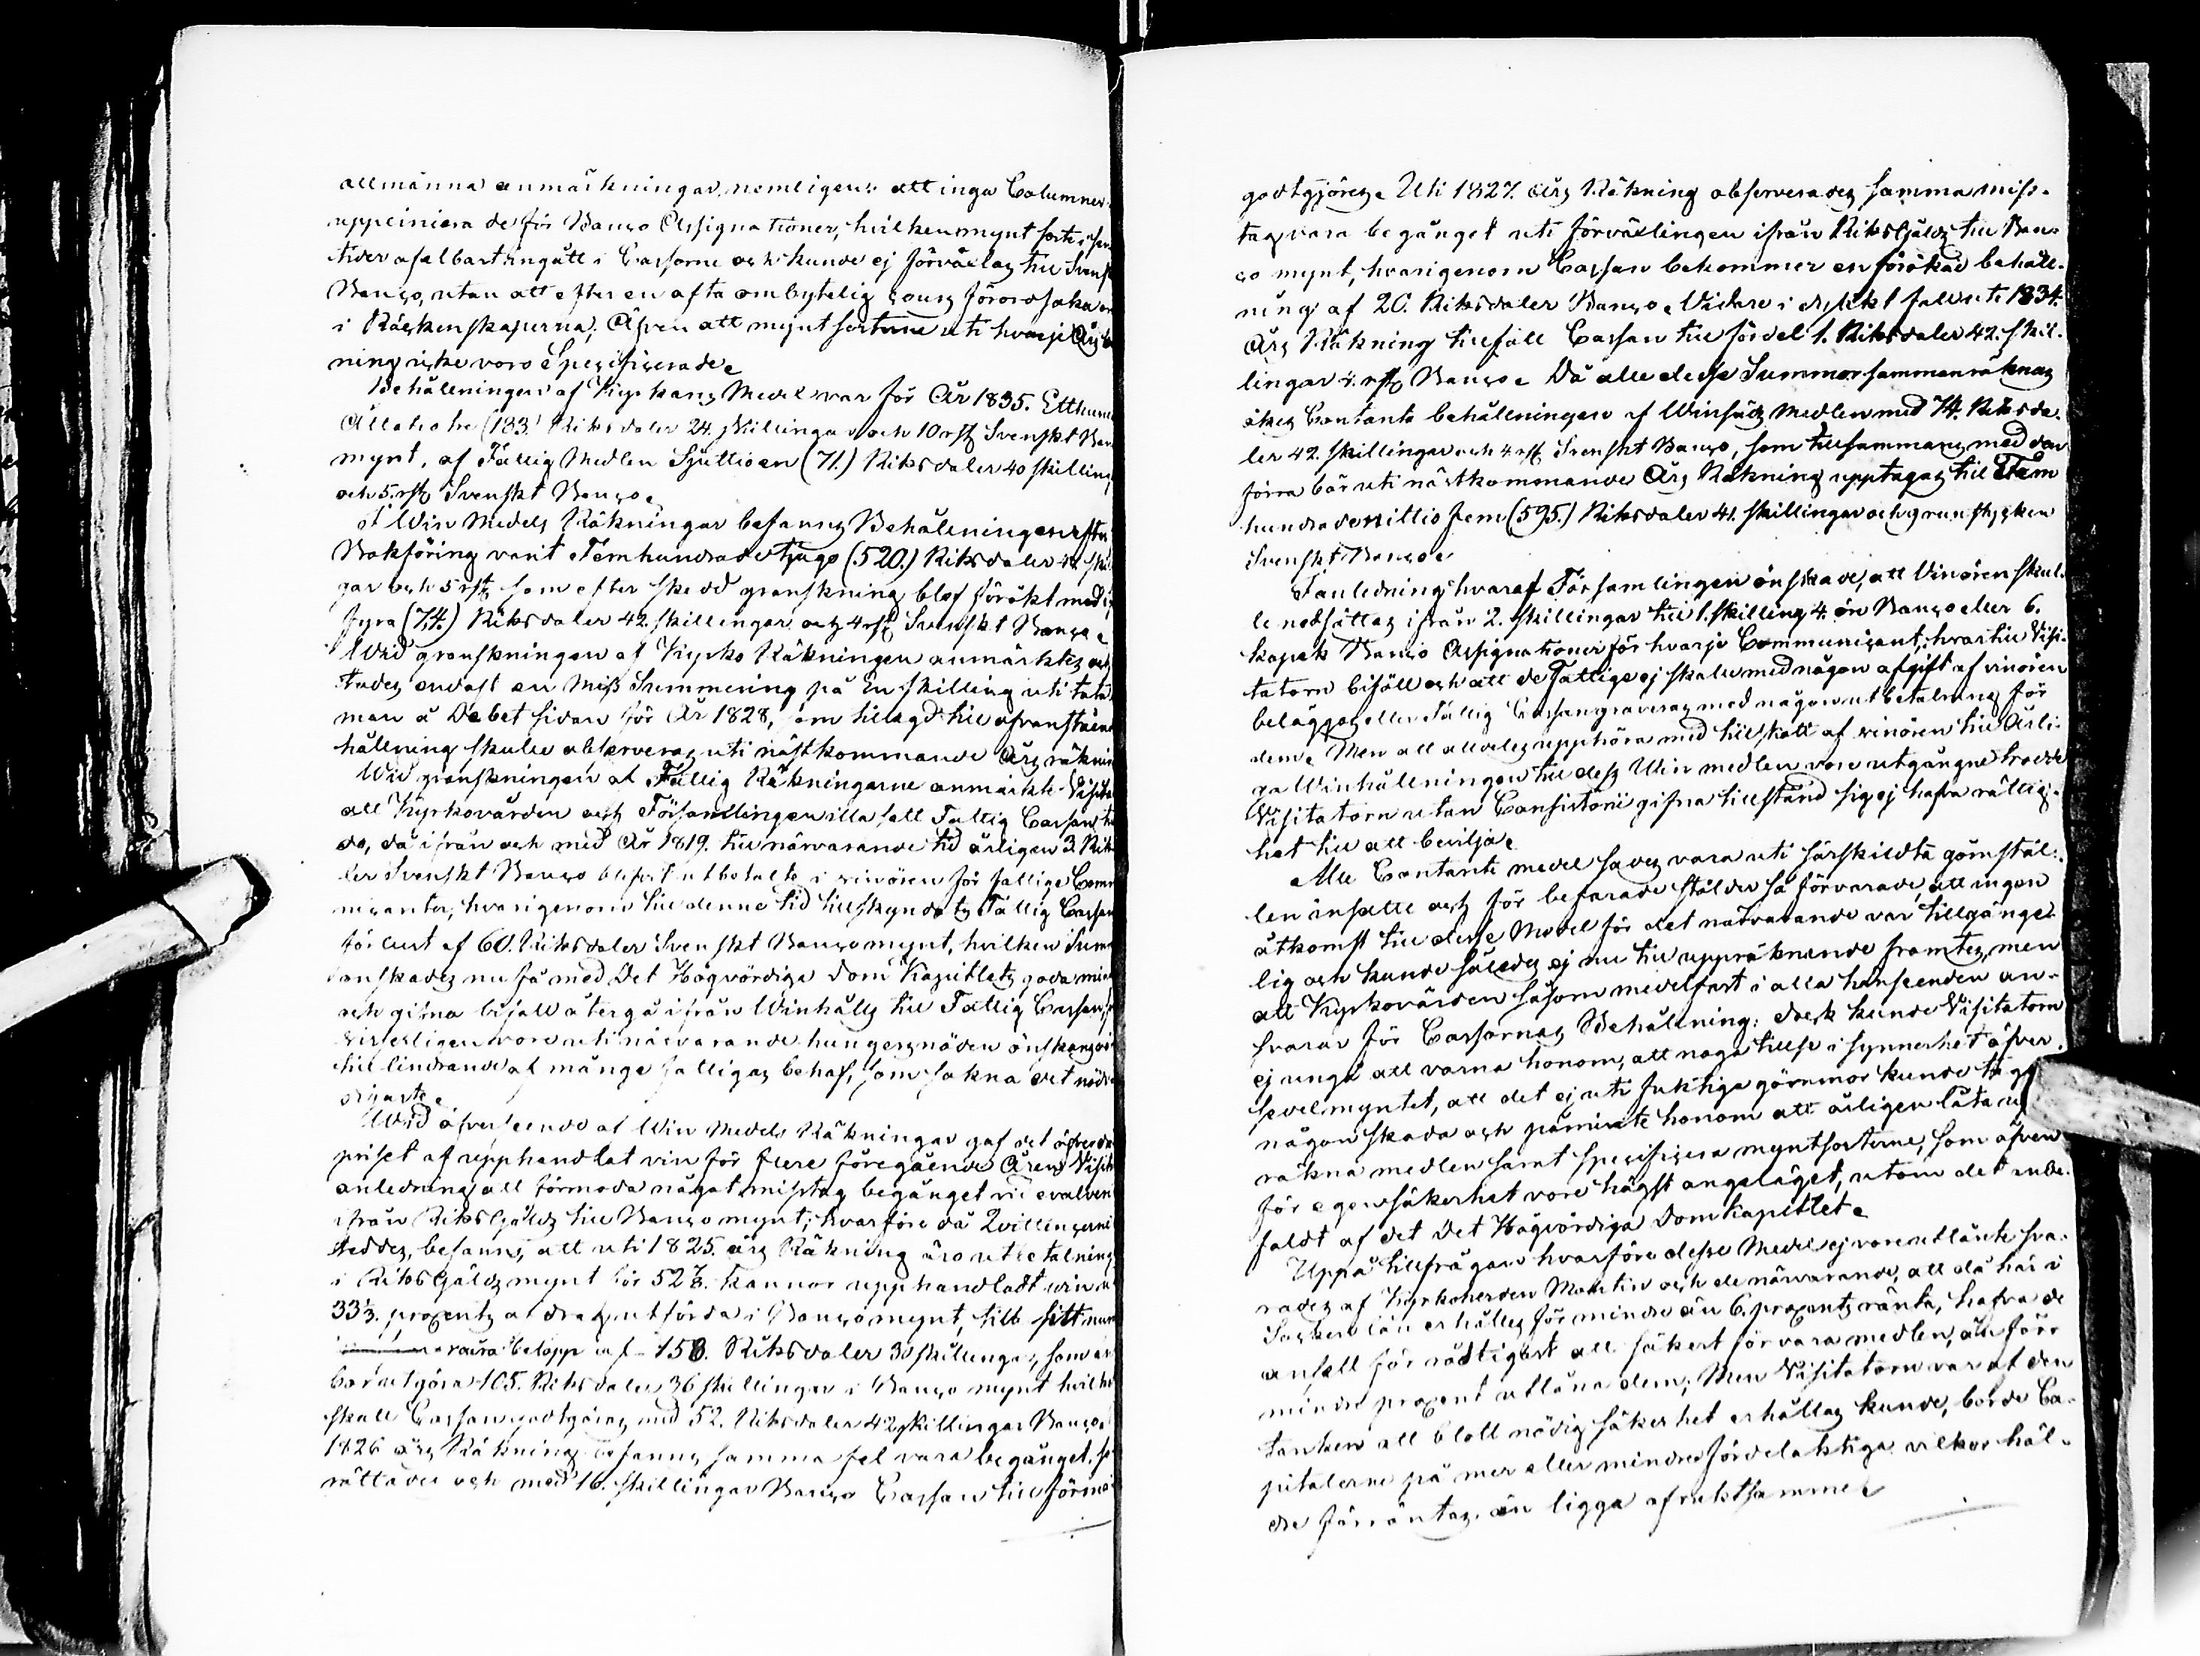 allmänna anmärkningar, nemligen: att inga Columner
uppliniera de för Banco Assignationer, hvilken mynt sort i
tider afalbart ingått i Cassorne och kunde ej förväxlas till
Banco, utan att efter en ofta ombytelig cours förorsaka
i Räckenskaperna; Äfven att myntsorterne uti hvarje Års
ning icke voro Specificerade.
Behållningen af Kyrkans Medel var för År 1835. Etthundra
Åttatio tre (183.) Riksdaler 24. skillingar och 10 rst Svenskt Ban
mynt, af Fattig Medlen Sjuttioen (71.) Riksdaler 40 skilling
och 5. rst Svenskt Banco.
Af Win Medels Räkningar befanns Behållningen efter
Bokföring varit Femhundrade tjugo (520.) Riksdaler skil
gar och 5 rst som efter skedd granskning blef förökt med
fyra (74.) Riksdaler 42. skillingar och 4 rst Svenskt Banco.
Wid granskningen af Kyrko Räkningen anmärktes
tades endast en Miss Summering på En skilling uti
man å Debet sidan för År 1828, som tillagd till ofvanståen
hållning skulle observeras uti nästkommande Års räkning
Wid granskningen af Fattig Räkningarne anmärkte Visita
att Kyrkovärden och Församlingen illa satt Fattig Cassan
do, då ifrån och med År 1819. till närvarande tid årligen 3. Rik
ler Svenskt Banco blifvit utbetalte i vinören för fattige Com
nicanter, hvarigenom till denne tid tillskyndats Fattig Cassan
förlust af 60. Riksdaler Svenskt Banco mynt, hvilken Sum
önskades nu få med Det Högvördiga Dom Kapitlets goda
och gifna bifall återgå ifrån Winhålls till Fattig Cassan,
visserligen vore uti närvarande hungersnöden
till lindrande af många fattigas behof, som sakna det nöd
Wid öfverseende af Win Medels Räkningar gaf det
priset af upphandlat vin för flere föregående Åren Visit
anledning att förmoda något misstag begånget vid
ifrån Riksgälds till Banco mynt; hvarföre då
steddes, befanns, att uti 1825. års Räkning äro utbetalning
i Riksgälds mynt för 52 kannor upphandladt win
33⅓. procents afdrag utförda i Banco mynt, till sitt
belopp af 158. Riksdaler 30 skillingar, som
bör utgöra 105. Riksdaler 36 skillingar i Banco mynt
skall Cassan godtgöras med 52. Riksdaler 42 skillingar Banco.
1826 års Räkning befanns samma fel vara begånget,
rättades och med 16. skillingar Banco Cassan till förmå
godtgjöres. Uti 1827. Års Räkning observerades samma miss-
tag vara begånget uti förväxlingen ifrån Riksgälds till Ban-
co mynt, hvarigenom Cassan bekommer en förökad behåll-
ning af 20. Riksdaler Banco. Vidare i dylikt fall uti 1834.
Års Räkning tillföll Cassan till fördel 1. Riksdaler 42. skil-
lingar 4. rst Banco. Då alle desse Summor sammanräknas
ökes Contanta behållningen af Winsäds medlen med 74. Riksda-
ler 42. skillingar och 4 rst Svenskt Banco, som tillsammans med den
förra bör uti nästkommande Års Räkning upptagas till Fem
hundrade nittio fem (595.) Riksdaler 41. skillingar och runstycken
Svenskt Banco.
I anledning hvaraf Församlingen önskade, att Vinören skul-
le nedsättas ifrån 2. skillingar till 1. skilling 4. öre Banco eller 6.
kopek Banco Assignationer för hvarje Communicant; hvartill Visi-
tatorn biföll och att de Fattige ej skulle med någon afgift af vinören
beläggas eller Fattig Cassan graveras med någon utbetalning för
dem. Men att alldeles upphöra med tillskott af vinören till Årli-
ga Winhållningen till dess Win medlen vore utgångne trodde
Visitatorn utan Consistorii gifna tillstånd sig ej hafva rättig-
het till att bevilja.
Alle Contante medel sades vara uti särskildta gömstäl-
len insatte och för befarade stölder så förvarade, att ingen
åtkomst till desse Medel för det närvarande var tillgänge-
lig och kunde således ej nu till uppräknande framtes, men
att Kyrkovärden såsom medelfast i alla hänseenden an-
svarar för Cassornas Behållning: dock kunde Visitatorn
ej undgå att varna honom, att noga tillse i synnerhet öfver
sedelmyntet, att det ej uti fuktiga gömmor kunde taga
någon skada och påminte honom att årligen låta
räkna medlen samt specificera myntsorterne, som äfven
för egen säkerhet vore högst angeläget, utom det anbe-
faldt af det Det Högvördiga Domkapitlet.
Uppå tillfrågan hvarföre desse Medel ej voro utlånte sva-
rades af Kyrkoherden och de närvarande, att då här i
Socken lån erhålles för mindre än 6. procents ränta, hafva de
ansett för rådligast att säkert förvara medlen, än för
mindre procent utlåna dem; Men Visitatorn var af den
tanken att blott nödig säkerhet erhållas kunde, borde Ca-
pitalerne på mer eller mindre fördelaktiga vilkor häl-
dre förräntas, än ligga ofruktsamme.